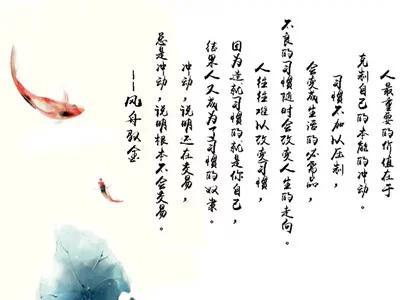 人最重要的价值在于
克制自己的本能的冲动。
习惯不加以压制，
会变成生活的必需品，
不良的习惯随时会改变人生的走向。
人往往难以改变习惯，
因为造就习惯的就是你自己，
结果人又成为了习惯的奴隶。
冲动，说明还在交易，
总是冲动，说明根本不会交易。
——风舟驭金